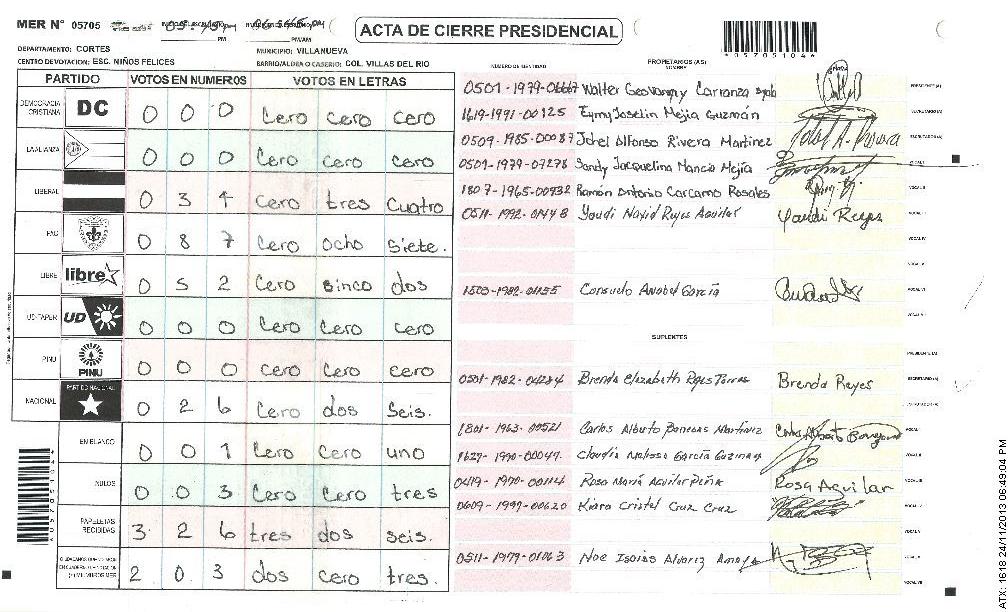 MER N° 05705
ACTA DE CIERRE PRESIDENCIAL
*05705104*
DEPARTAMENTO: CORTES
MUNICIPIO: VILLANUEVA
CENTRO DE VOTACION: ESC. NIÑOS FELICES
BARRIO/ALDEA O CASERIO: COL. VILLAS DEL RIO
PARTIDO VOTOS EN NUMEROS VOTOS EN LETRAS
DEMOCRACIA CRISTIANA DC 0 0 0 Cero cero cero
LA ALIANZA 0 0 0 Cero cero cero
LIBERAL 0 3 4 cero tres cuatro
PAC 0 8 7 Cero ocho siete.
LIBRE libre 0 5 2 Cero sinco dos
UD-FAPER UD 0 0 0 Cero Cero cero
PINU PINU 0 0 0 Cero cero cero
NACIONAL PARTIDO NACIONAL 0 2 6 Cero dos seis.
EN BLANCO 0 0 1 Cero Cero uno
NULOS 0 0 3 Cero Cero tres
PAPELETAS RECIBIDAS 3 2 6 tres dos seis.
2 0 3 dos cero tres.
NUMERO DE IDENTIDAD
PROPIETARIOS (AS)
NOMBRE
Walter Geovanny Carranza PRESIDENTE (A)
1619-1991-00125 Eymy Joselin Mejia Guzmán SECRETARIO (A)
0509-1985-00087 Johel Alfonso Rivera Martinez ESCRUTADOR (A)
0501-1979-07278 Sandy Jacquelina Mancia Mejía VOCAL I
1807-1965-00932 Ramón Antonio Carcamo Rosales VOCAL II
0511-1992-01448 Yaudi Navid Reyes Aguilar Yaudi Reyes VOCAL III
VOCAL IV
VOCAL V
1503-1982-01155 Consuelo Anabel García VOCAL VI
VOCAL VII
SUPLENTES
PRESIDENTE (A)
0501-1982-04284 Brenda Elizabeth Reyes Torres Brenda Reyes SECRETARIO (A)
ESCRUTADOR (A)
1801-1963-00521 Carlos Alberto Martínez VOCAL I
1627-1990-00047 Claudia Melissa García Guzman VOCAL II
0419-1990-00114 Rosa María Aguilar Peña Rosa Aguilar VOCAL III
0609-1999-00620 Kiara Cristel Cruz Cruz VOCAL IV
VOCAL V
0511-1979-01063 Noe Isaias Alvarez Amaya VOCAL VI
VOCAL VII
*05705104*
ATX: 1618 24/11/2013 06:49:04 PM